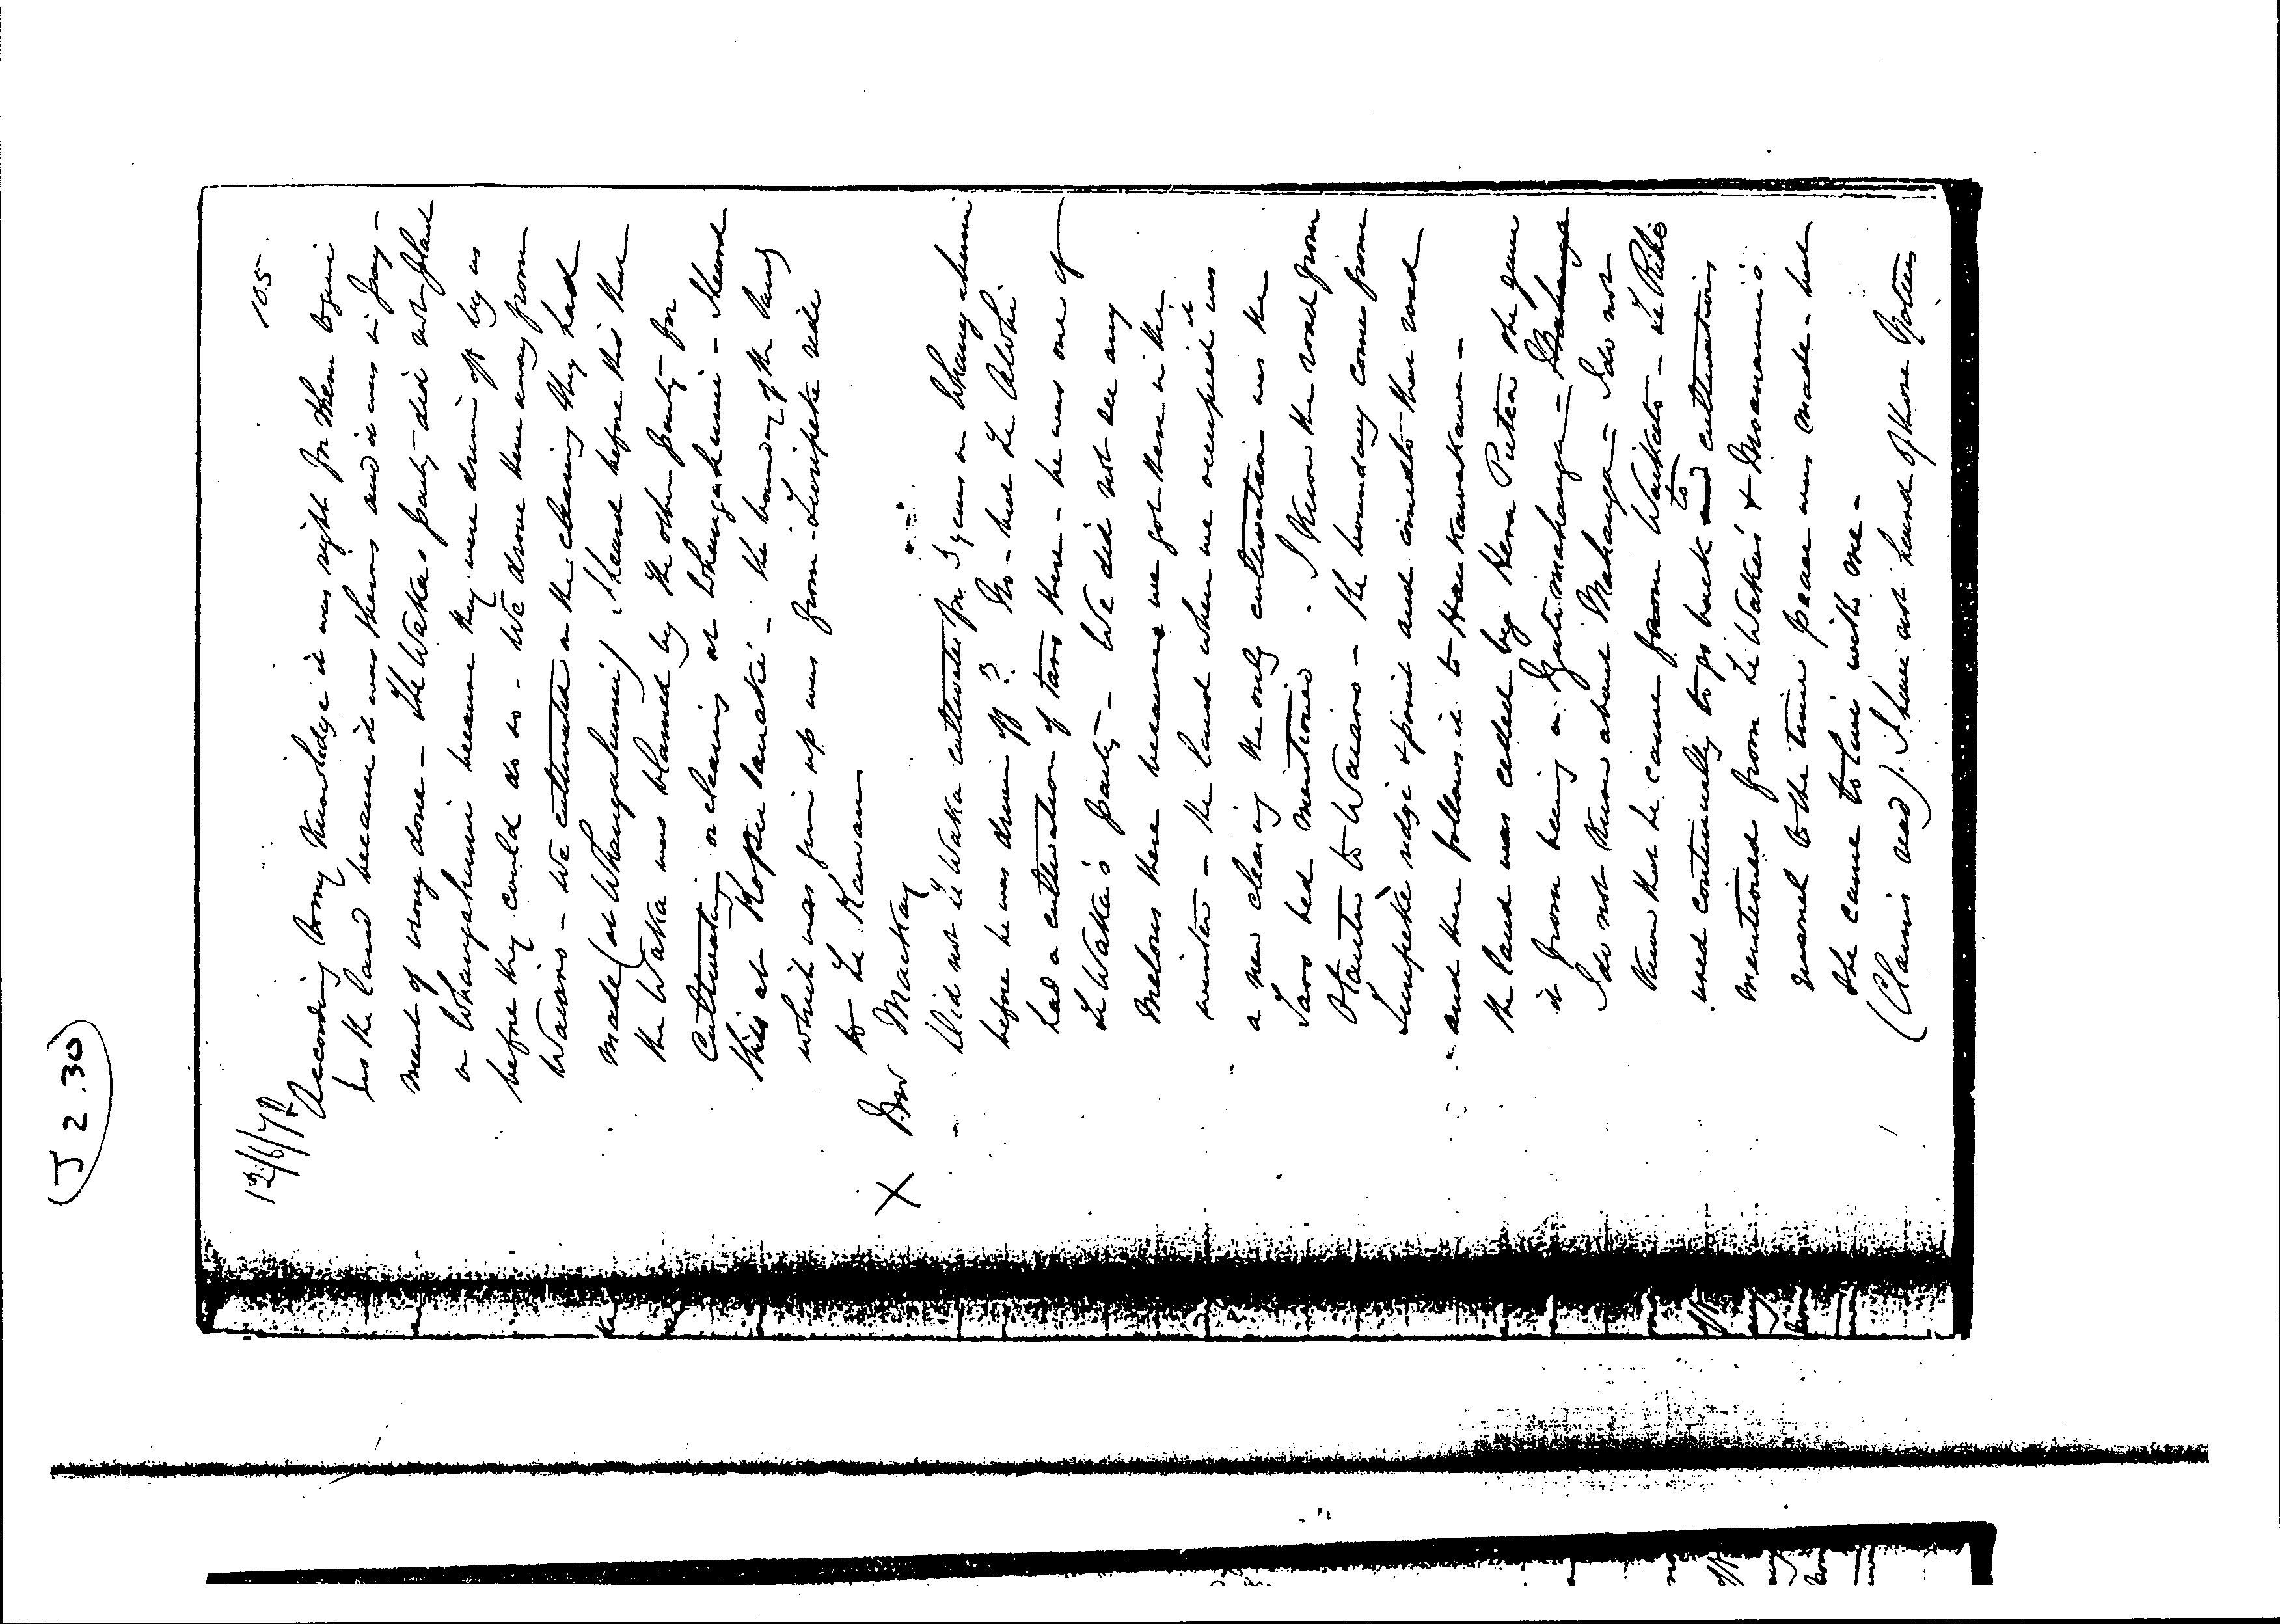 (J 2.30)
105
12/6/78
According to my knowledge it was right for them to give
us the land because it was theirs and it was in pay-
ment of wrong done - Te Waka's party did not plant
on Whangahumi because they were driven off by us
before they could do so - We drove them away from
Wairo - We cultivated on the clearing they had
made (at Whangahumi) I heard before this that
Te Waka was blamed by the other party for
Cultivating or clearing at Whangahumi - I heard
this at - the boundary of the land
which was given up was from Turipeke side
to Te Rawa
X Mr Mackay
Did not Te Waka cultivate for 3 years on Whangahumi
before he was driven off? No - but Te Awhi
had a cultivation of taro there - he was one of
Te Waka's party - We did not see any
Melons there because we got there in the
winter - the land when we occupied it was
a new clearing the only cultivation was the
Taro bed mentioned - I know the road from
to Wairo - the boundary comes from
Turipeke ridge & point and comes to that road
and then follows it to Haukawakawa -
the land was called by Hera Puteao she gave
it from being a -
I do not know about Mahanga - I do not
know that he came from Waikato - Te Rike
used continually to go back to cultivations
mentioned from Te Waka's & Moananui's
quarrel to the time peace was made - but
she came to live with me -
(Claims read). I have not heard of those